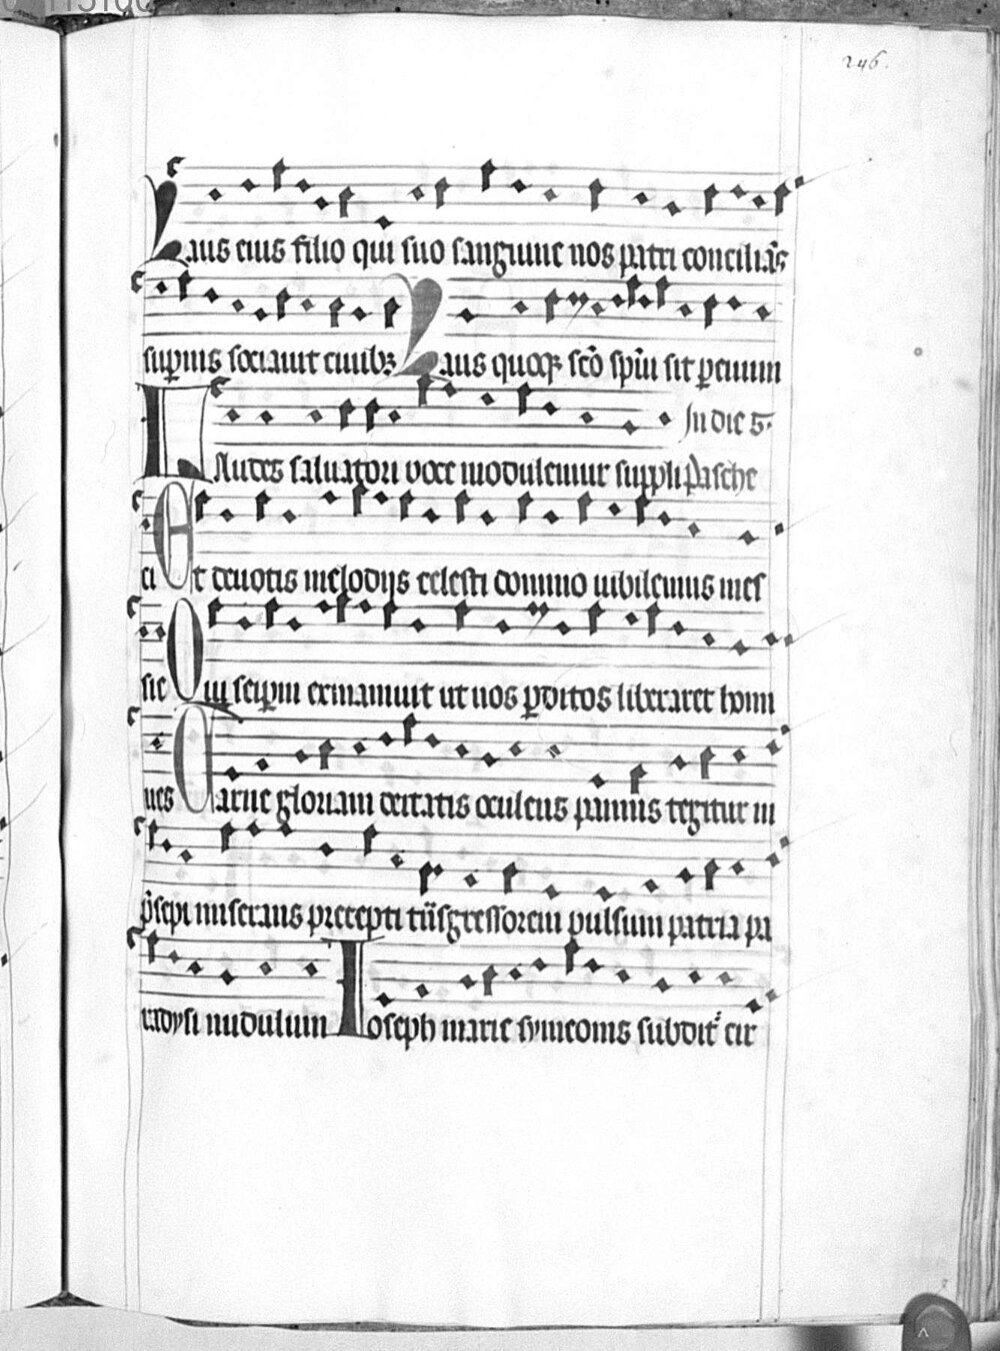 246.
Laus eius filio qui suo sanguine nos patri concilia͛s
supnis sociauit ciuibꝫ Laus quoqꝫ sc̄o spūi sit peuum
In die s.
LAudes saluatori uoce modulemur suppli Pasche
ci Et deuotis melodijs celesti domino iubilemus mes
sie Qui seipm exinaniuit ut nos pditos liberaret homi
nes Carne gloriam deitatis oculens pannis tegitur in
p̄sepi miserans precepti tn̄sgressorem pulsum patria pa
radysi nudulum Ioseph marie symeonis subdit᷑ cir